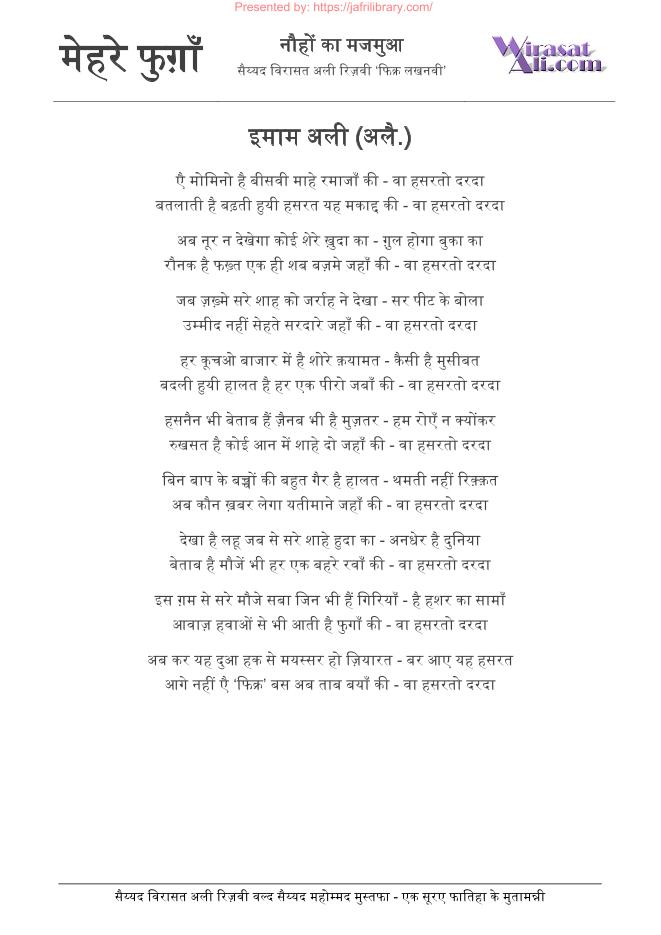 Presented by: https://jafrilibrary.com/
मेहरे फुग़ाँ
नौहों का मजमुआ
सैय्यद विरासत अली रिज़वी ‘फिक्र लखनवी’
Wirasat
Ali.com
इमाम अली (अलै.)
एै मोमिनो है बीसवी माहे रमाजाँ की - वा हसरतो दरदा
बतलाती है बढ़ती हुयी हसरत यह मकाद्द की - वा हसरतो दरदा
अब नूर न देखेगा कोई शेरे ख़ुदा का - ग़ुल होगा बुका का
रौनक है फख़्त एक ही शब बज़मे जहाँ की - वा हसरतो दरदा
जब ज़ख़्मे सरे शाह को जर्राह ने देखा - सर पीट के बोला
उम्मीद नहीं सेहते सरदारे जहाँ की - वा हसरतो दरदा
हर कूचओ बाजार में है शोरे क़यामत - कैसी है मुसीबत
बदली हुयी हालत है हर एक पीरो जबाँ की - वा हसरतो दरदा
हसनैन भी बेताब हैं ज़ैनब भी है मुज़तर - हम रोएँ न क्योंकर
रुखसत है कोई आन में शाहे दो जहाँ की - वा हसरतो दरदा
बिन बाप के बच्चों की बहुत गैर है हालत - थमती नहीं रिक़्क़त
अब कौन ख़बर लेगा यतीमाने जहाँ की - वा हसरतो दरदा
देखा है लहू जब से सरे शाहे हुदा का - अनधेर है दुनिया
बेताब है मौजें भी हर एक बहरे रवाँ की - वा हसरतो दरदा
इस ग़म से सरे मौजे सबा जिन भी हैं गिरियाँ - है हशर का सामाँ
आवाज़ हवाओं से भी आती है फ़ुगाँ की - वा हसरतो दरदा
अब कर यह दुआ हक से मयस्सर हो ज़ियारत - बर आए यह हसरत
आगे नहीं एै ‘फिक्र’ बस अब ताब बयाँ की - वा हसरतो दरदा
सैय्यद विरासत अली रिज़वी वल्द सैय्यद महोम्मद मुस्तफा - एक सूरए फातिहा के मुतामन्नी